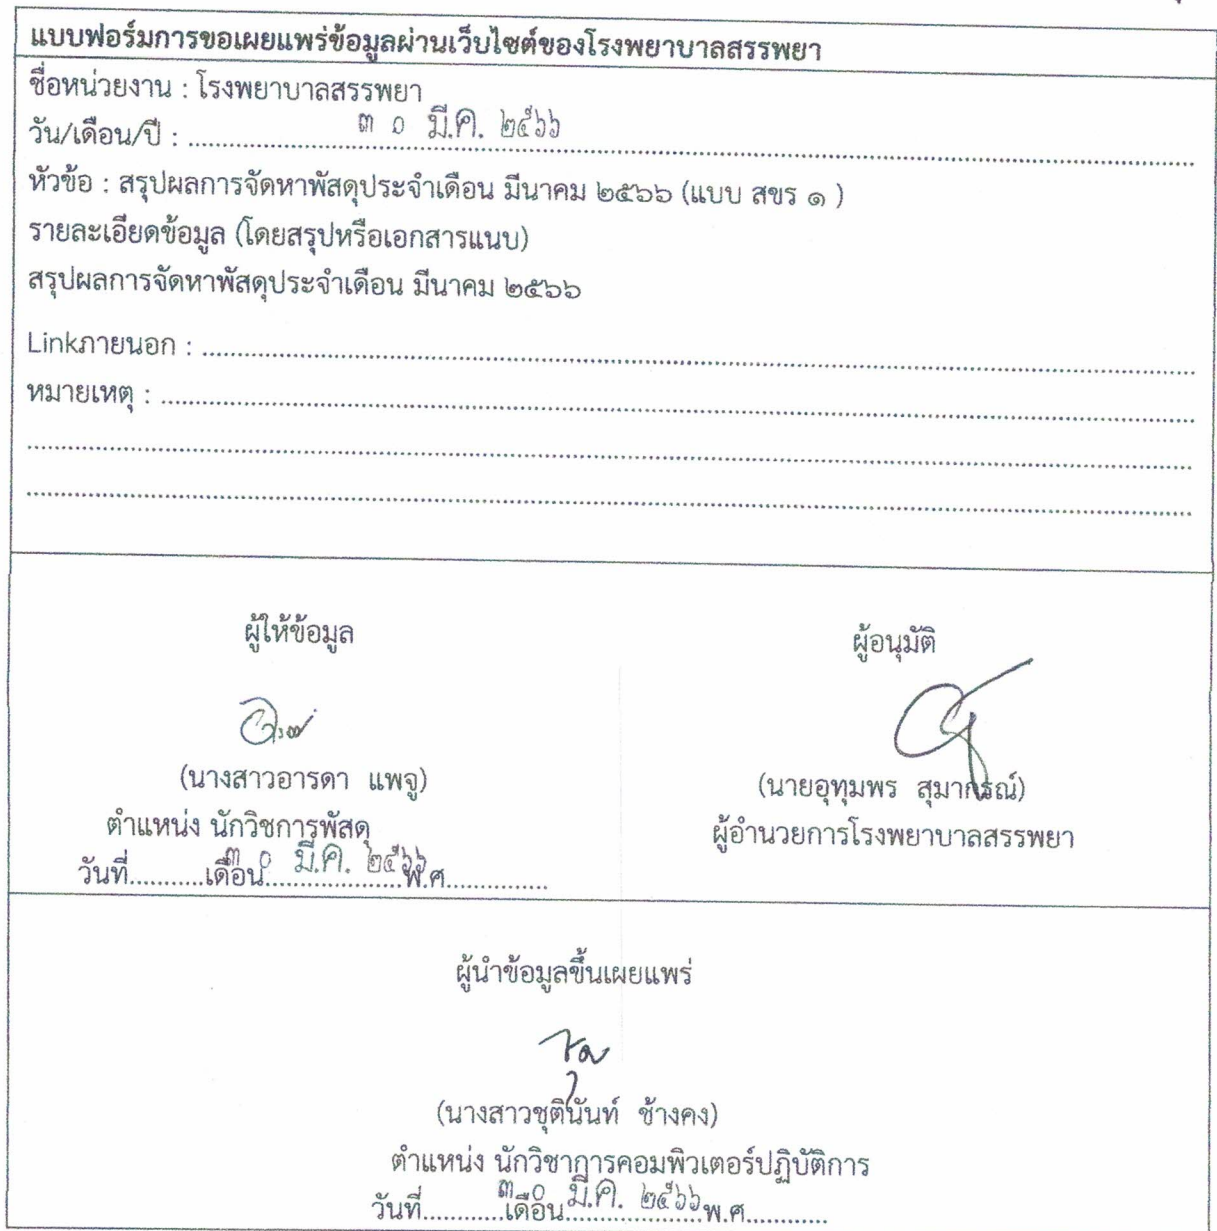 แบบฟอร์มการขอเผยแพร่ข้อมูลผ่านเว็บไซต์ของโรงพยาบาลสรรพยา
ชื่อหน่วยงาน : โรงพยาบาลสรรพยา
วัน/เดือน/ปี : ๓ ๐ มี.ค. ๒๕๖๖
หัวข้อ : สรุปผลการจัดหาพัสดุประจำเดือน มีนาคม ๒๕๖๖ (แบบ สขร ๑ )
รายละเอียดข้อมูล (โดยสรุปหรือเอกสารแนบ)
สรุปผลการจัดหาพัสดุประจำเดือน มีนาคม ๒๕๖๖
Linkภายนอก : ................................
หมายเหตุ : ................................
ผู้ให้ข้อมูล
(นางสาวอารดา แพจู)
ตำแหน่ง นักวิชการพัสดุ
วันที่...........เดือน ๓ ๐ มี.ค. ๒๕๖๖ พ.ศ...............
ผู้อนุมัติ
(นายอุทุมพร สุมากรณ์)
ผู้อำนวยการโรงพยาบาลสรรพยา
ผู้นำข้อมูลขึ้นเผยแพร่
(นางสาวชุตินันท์ ช้างคง)
ตำแหน่ง นักวิชาการคอมพิวเตอร์ปฏิบัติการ
วันที่............เดือน ๓ ๐ มี.ค. ๒๕๖๖ พ.ศ............